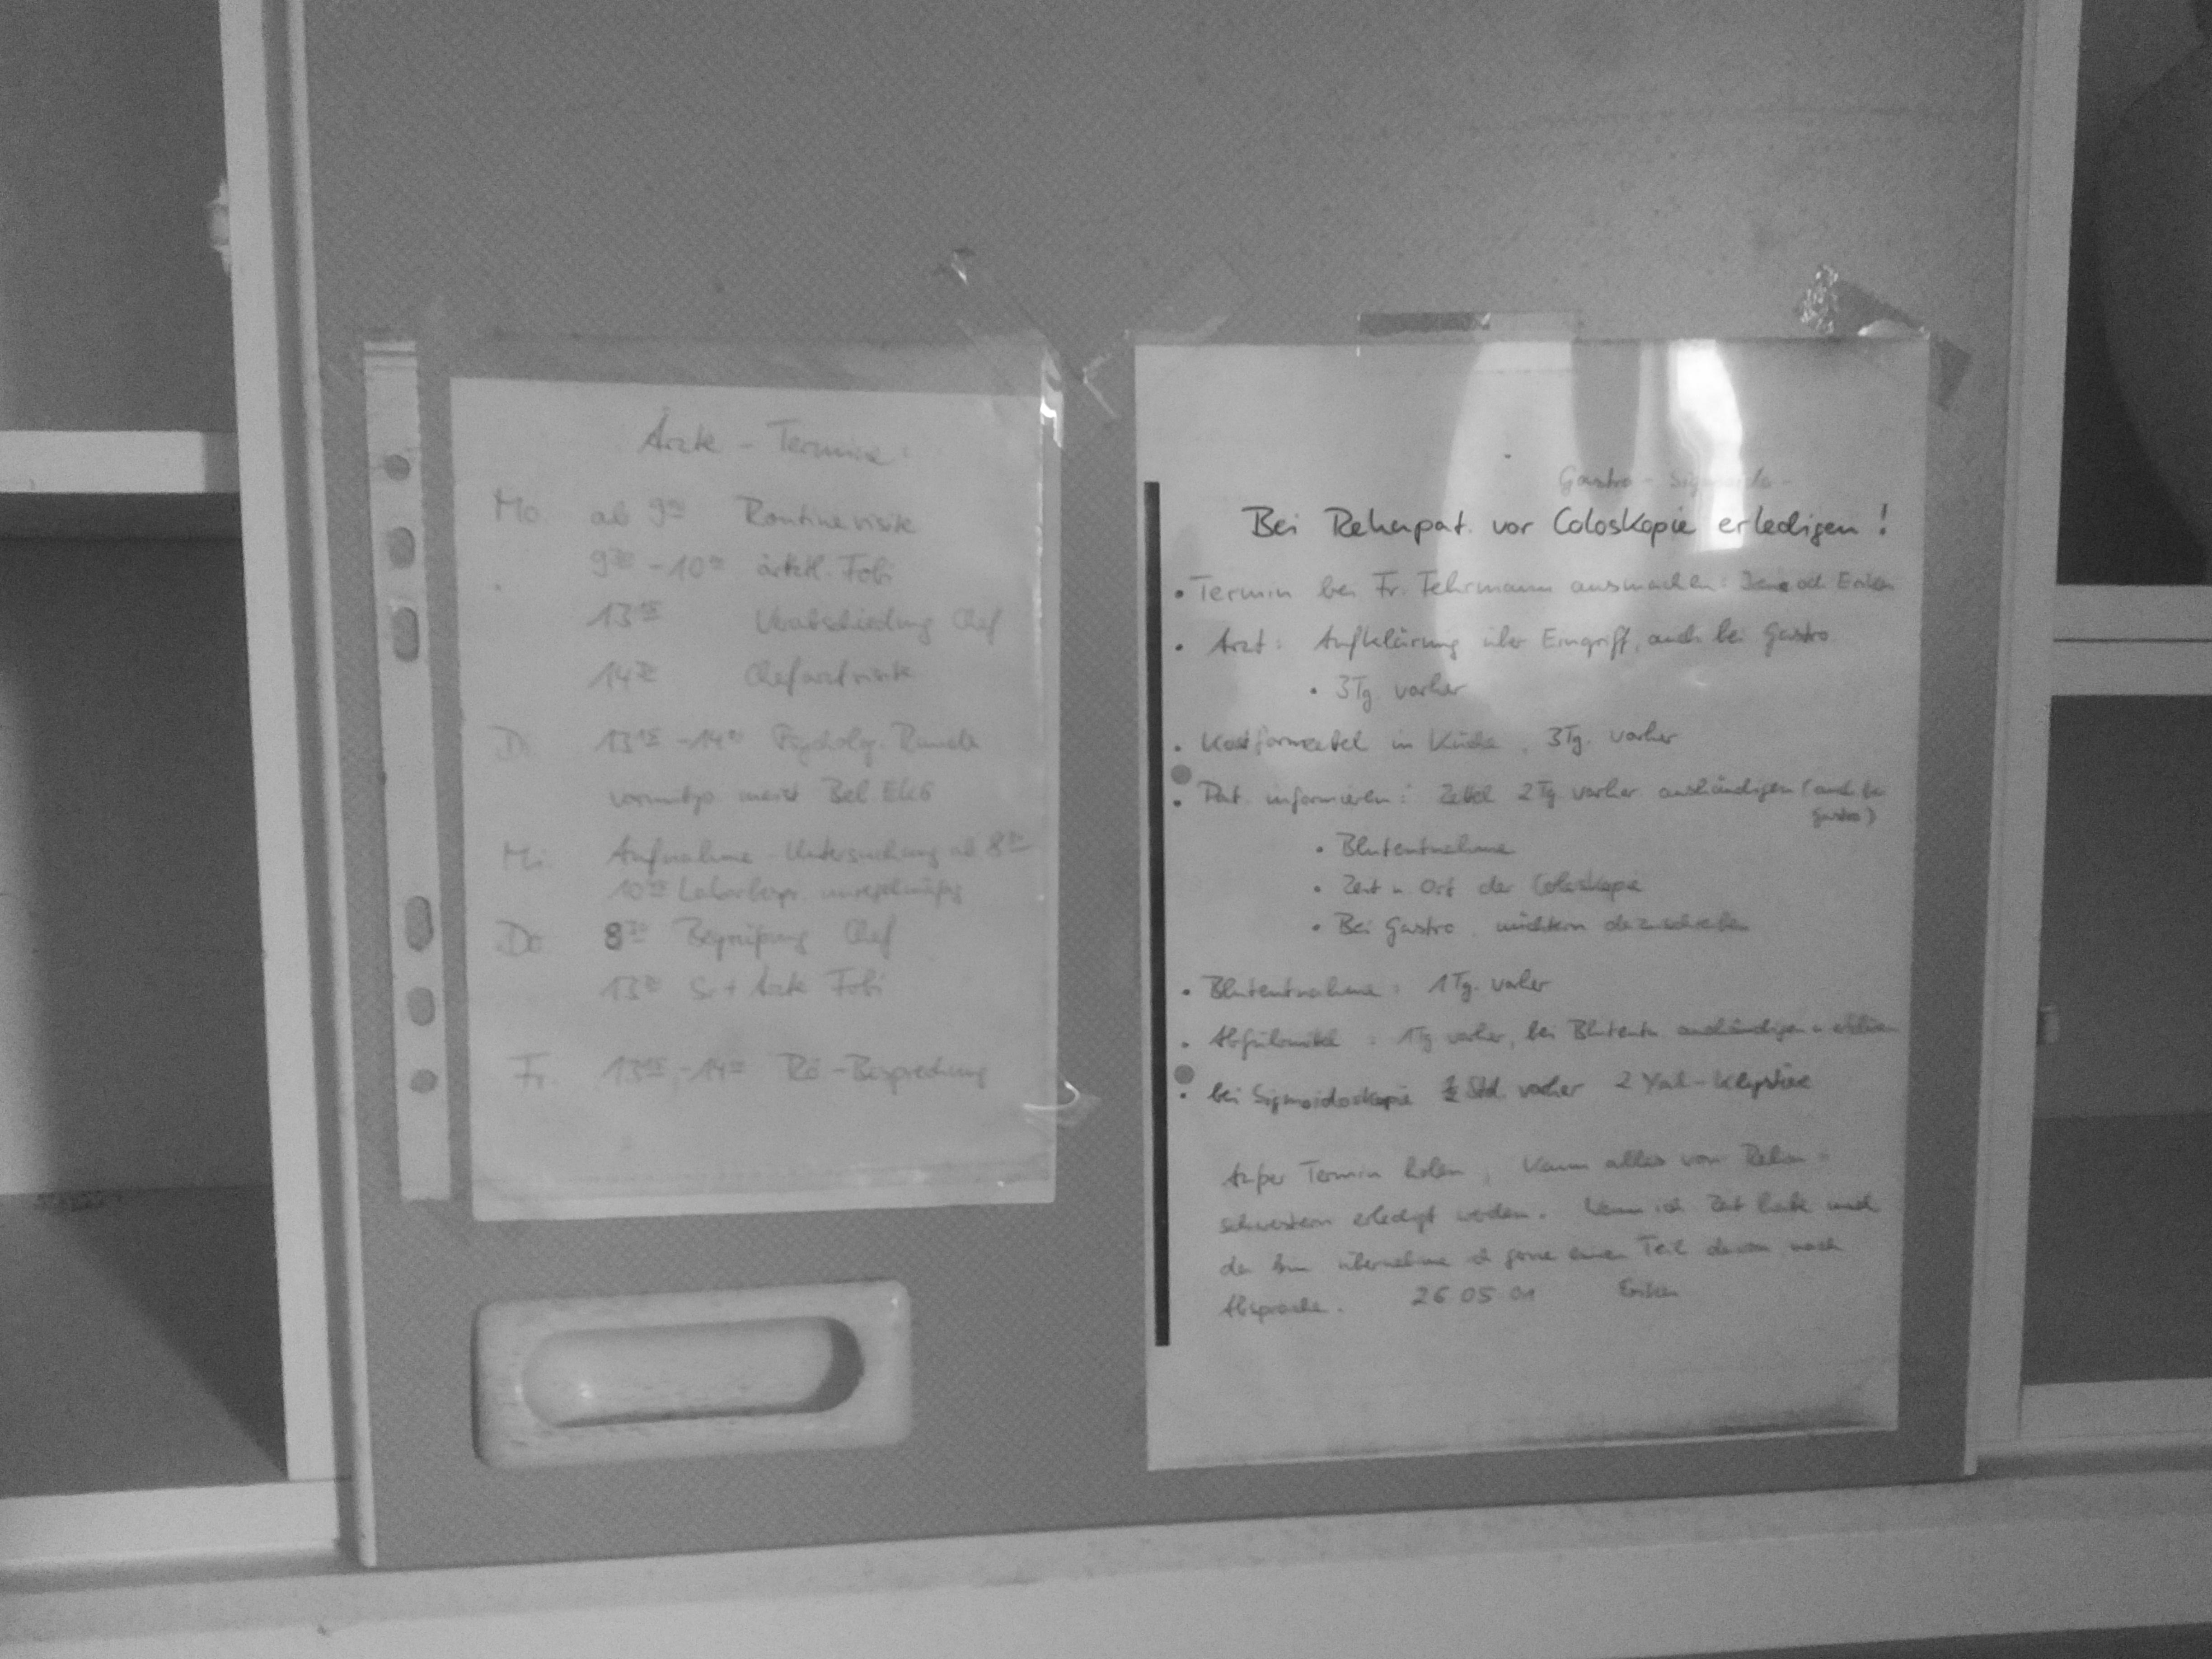 Ärzte - Termine:
Mo ab 9⁰⁰ Routinevisite
9³⁰ - 10⁰⁰ ärztl. Fobi
13¹⁵ Verabschiedung Chef
14⁰⁰ Chefarztvisite
Di 13¹⁵ - 14⁰⁰ Psycholog. Runde
vormittgs meist Bel. EKG
Mi. Aufnahme-Untersuchung ab 8³⁰
10⁰⁰ Laborbespr. unregelmäßig
Do 8³⁰ Begrüßung Chef
13⁰⁰ Sr + Ärzte Fobi
Fr. 13¹⁵ - 14⁰⁰ Rö-Besprechung
Gastro -
Bei Rehapat. vor Coloskopie erledigen!
• Termin bei Fr. Fehrmann ausmachen:
• Arzt: Aufklärung über Eingriff, auch bei Gastro
• 3Tg. vorher
• Kostformzettel in Küche, 3Tg. vorher
• Pat. informieren: Zettel 2Tg vorher aushändigen (auch bei Gastro)
• Blutentnahme
• Zeit u. Ort der Coloskopie
• Bei Gastro, nüchtern dazuschreiben
• Blutentnahme: 1Tg. vorher
• Abführmittel: 1Tg vorher, bei Blutentn. aushändigen u.
• bei Sigmoidoskopie ½ Std. vorher 2 Yal-Klystier
Außer Termin holen, kann alles von Reha-
schwestern erledigt werden. Wenn ich Zeit habe und
da bin übernehme ich gerne einen Teil davon nach
Absprache. 26 05 01